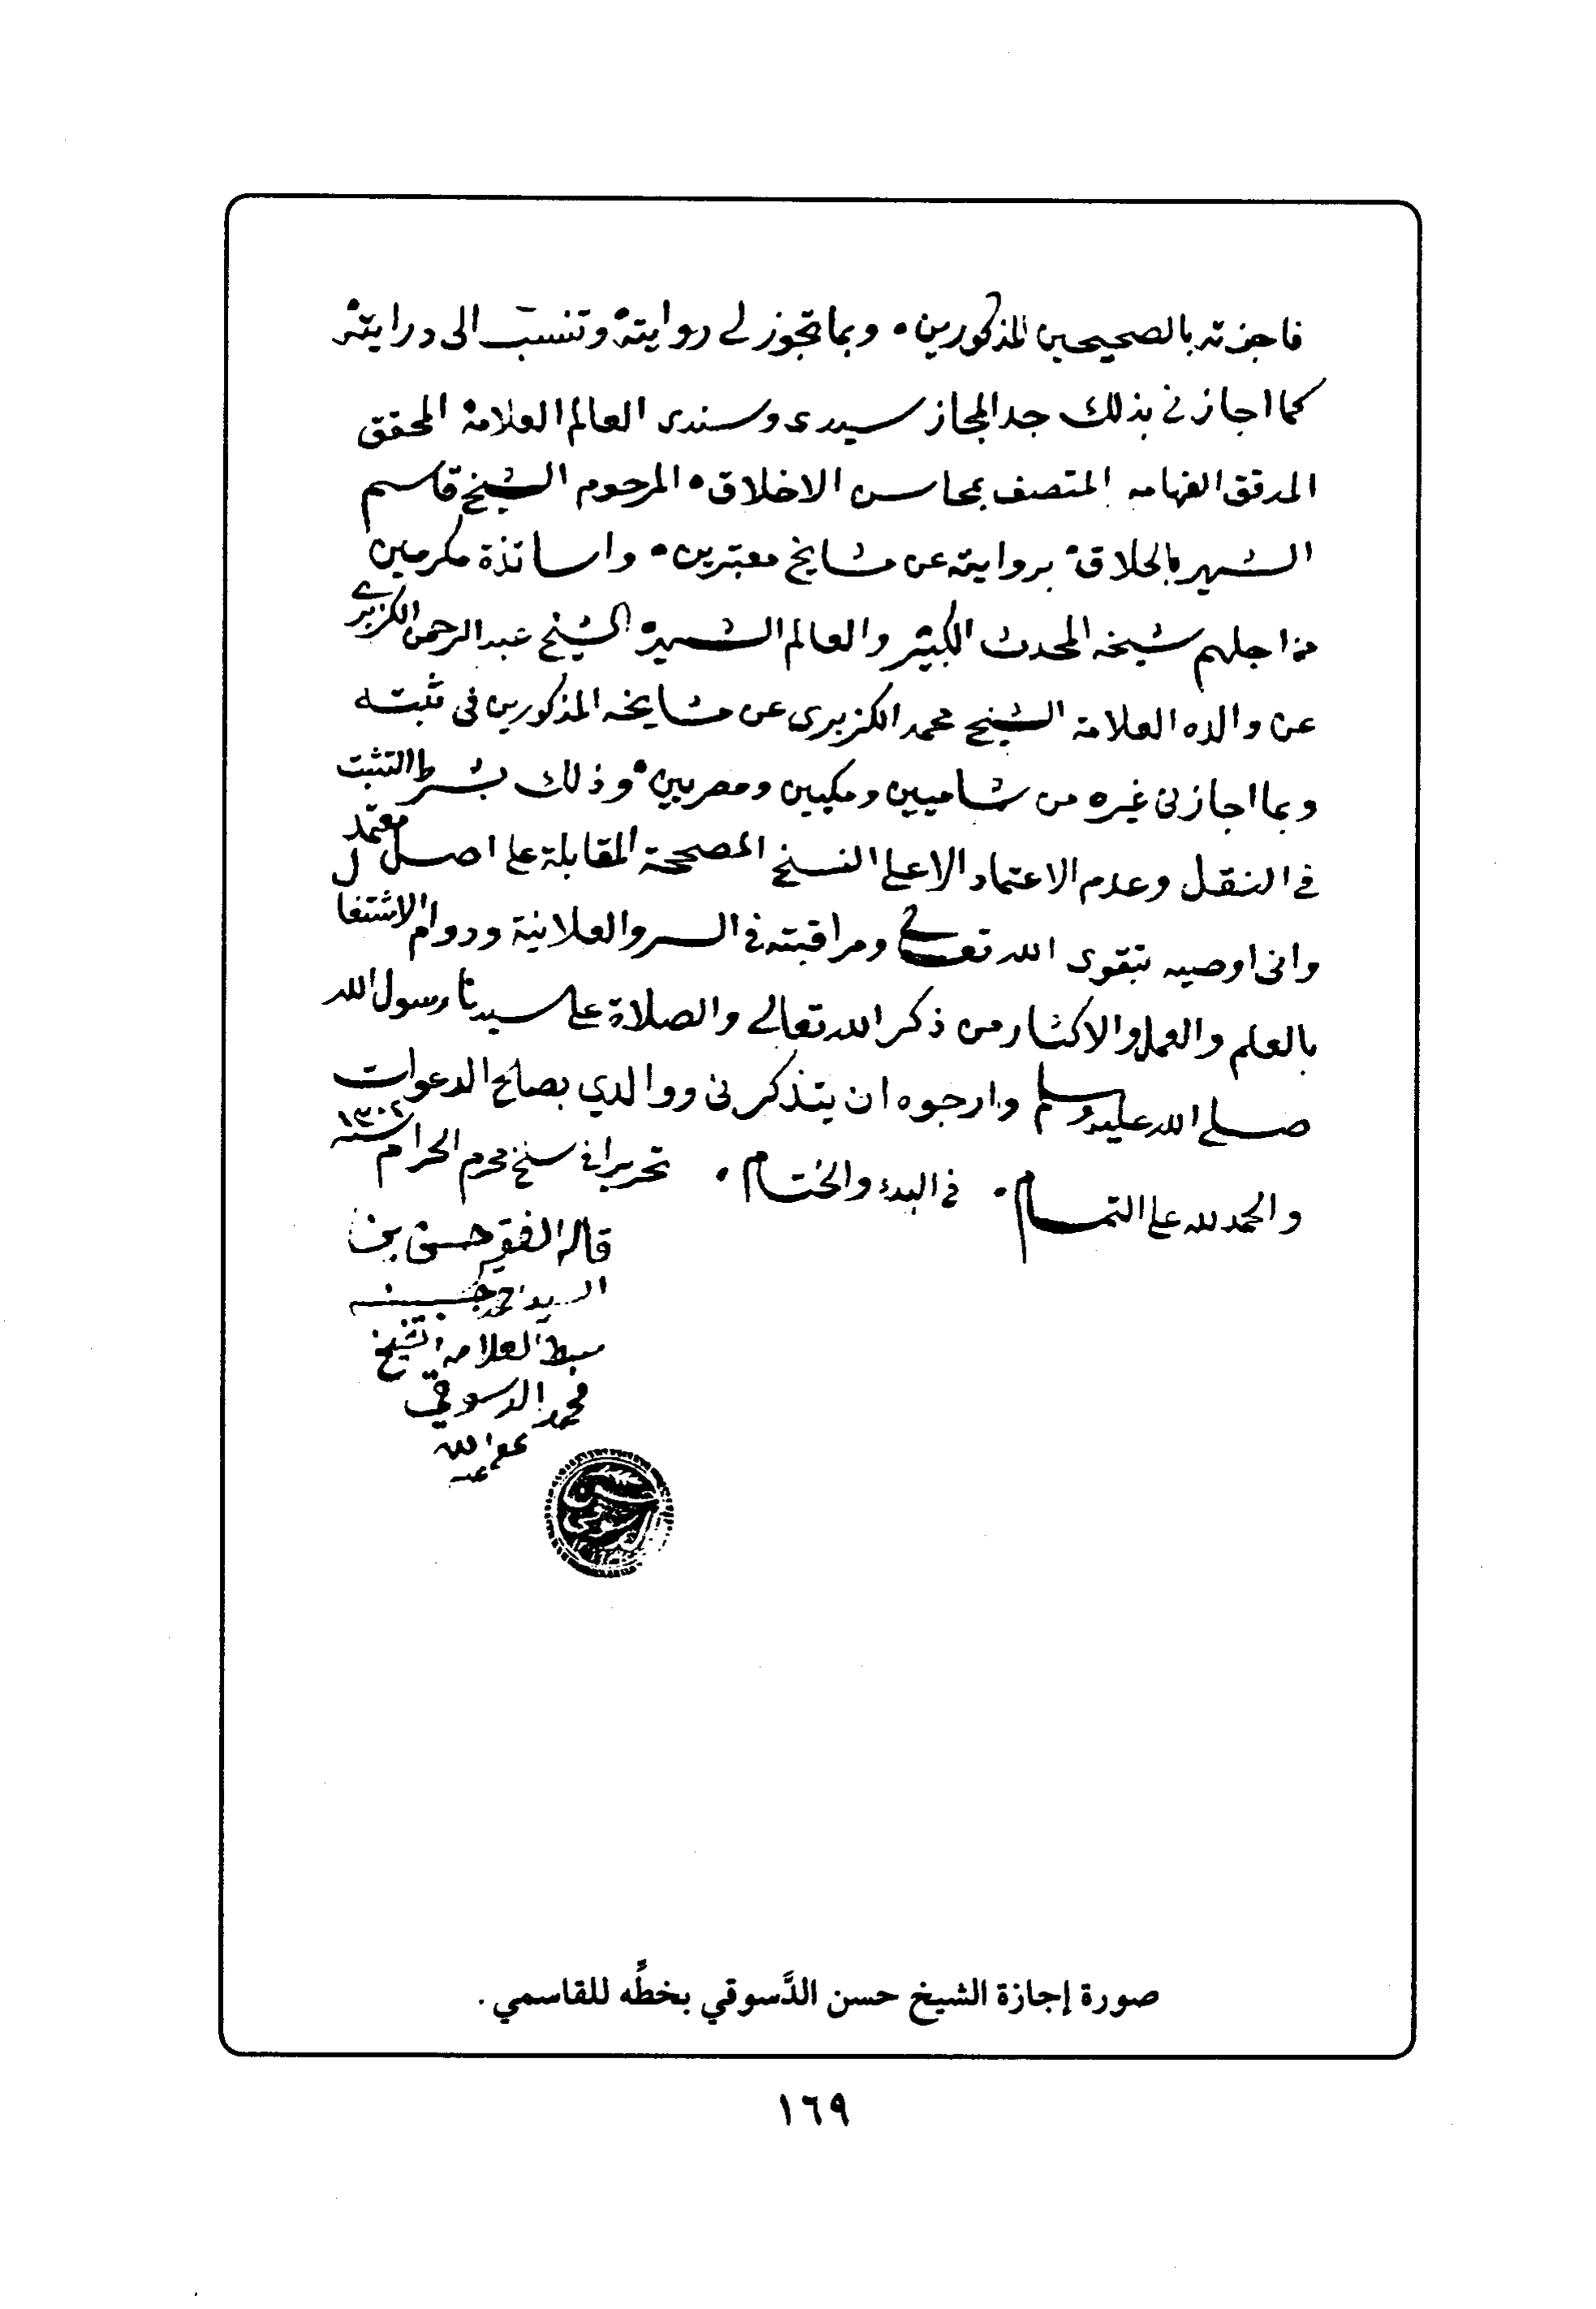 فاجزته بالصحيحين المذكورين • وبما تجوز لي روايته وتنسب الى درايته
كما اجازني بذلك جد المجاز سيدى وسندى العالم العلامة المحقق
المدقق الفهامه المتصف بمحاسن الاخلاق • المرحوم الشيخ قاسم
الشهير بالحلاق • بروايته عن مشايخ معتبرين • واساتذة مكرمين
من اجلهم شيخه المحدث الكبير والعالم الشهير الشيخ عبد الرحمن الكزبرى
عن والده العلامة الشيخ محمد الكزبرى عن مشايخه المذكورين فى ثبته
وبما اجازنى غيره من شاميين ومكيين ومصريين • وذلك بشرط التثبت
فى النقل وعدم الاعتماد الا على النسخ المصححة المقابلة على اصل معتمد
وانى اوصيه بتقوى الله تعالى ومراقبته فى السر والعلانية ودوام الاشتغال
بالعلم والعمل والاكثار من ذكر الله تعالى والصلاة على سيدنا رسول الله
صلى الله عليه وسلم وارجوه ان يتذكرنى ووالدي بصالح الدعوات
والحمد لله على التمام • فى البدء والختام • تحريرا فى سلخ محرم الحرام سنة ١٣٠٢
قاله الفقير حسن بن
السيد احمد
سبط العلامة الشيخ
محمد الدسوقي
عفى الله
عنه
صورة إجازة الشيخ حسن الدَّسوقي بخطِّه للقاسمي .
١٦٩